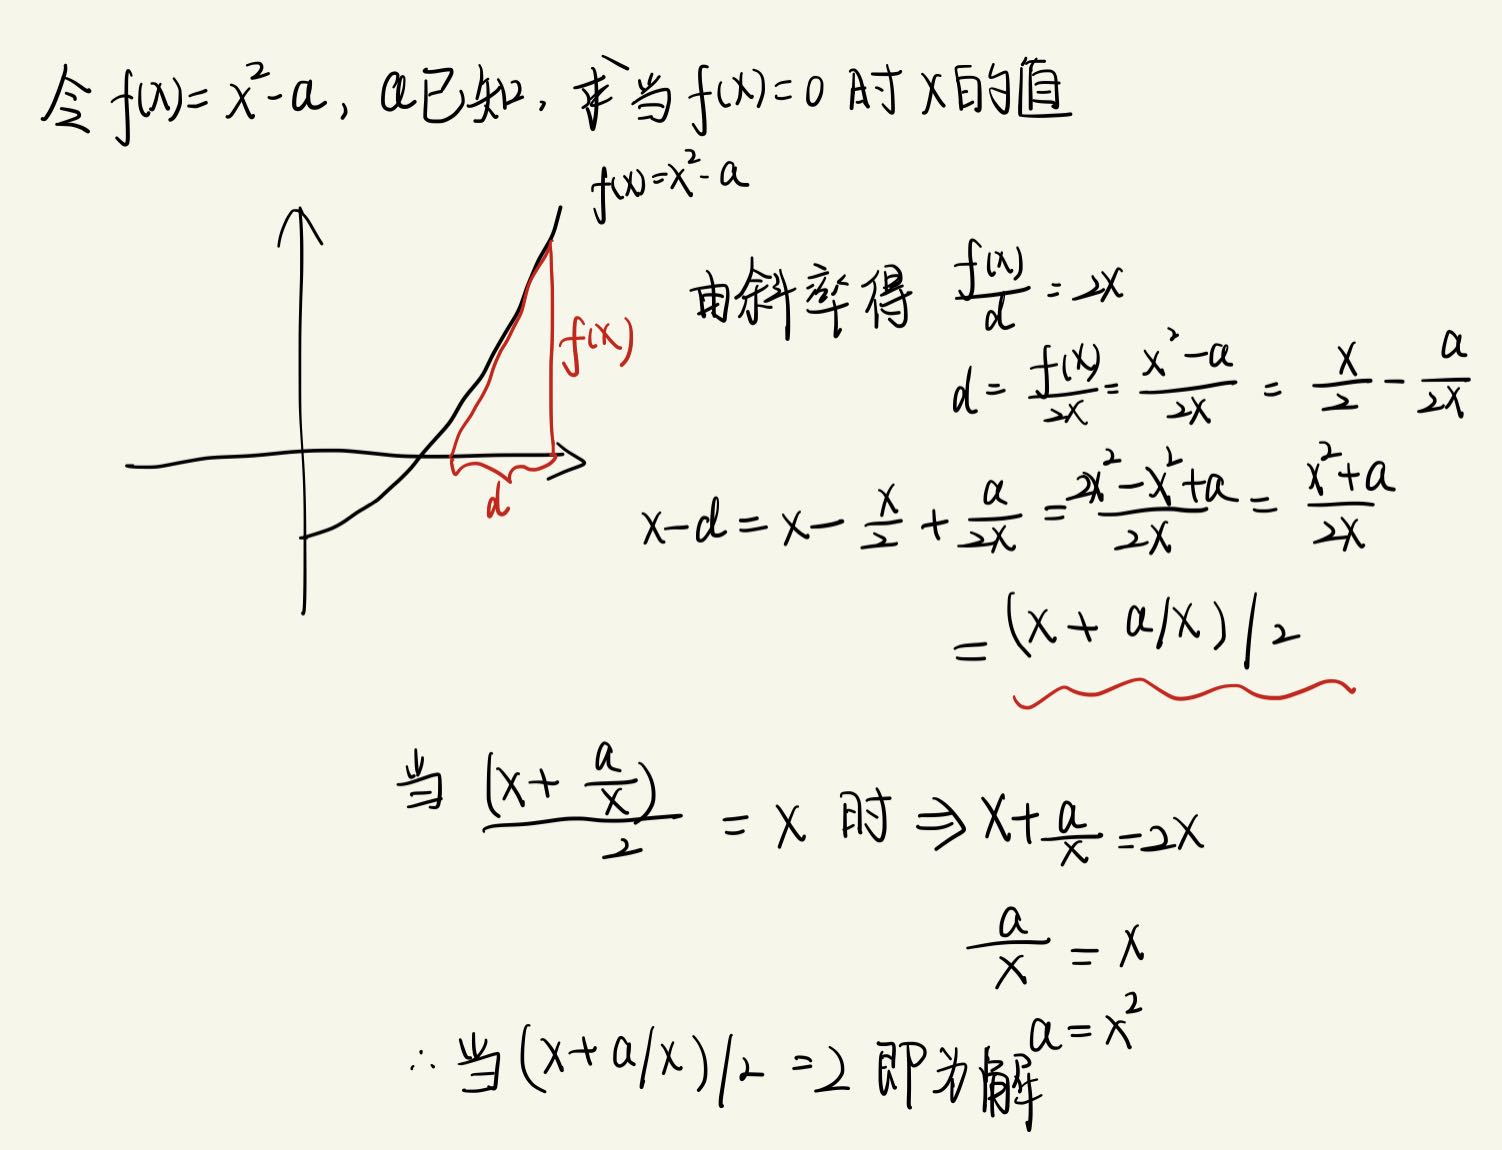 令 f(x)= x²-a, a已知, 求当 f(x)=0 时 x 的值
f(x)=x²-a
由斜率得 f(x)/d = 2x
f(x)
d = f(x)/2x = x²-a/2x = x/2 - a/2x
d
x-d = x - x/2 + a/2x = 2x²-x²+a/2x = x²+a/2x
= (x + a/x)/2
当 (x + a/x)/2 = x 时 ⇒ x + a/x = 2x
a/x = x
a = x²
∴ 当 (x + a/x)/2 = 2 即为解